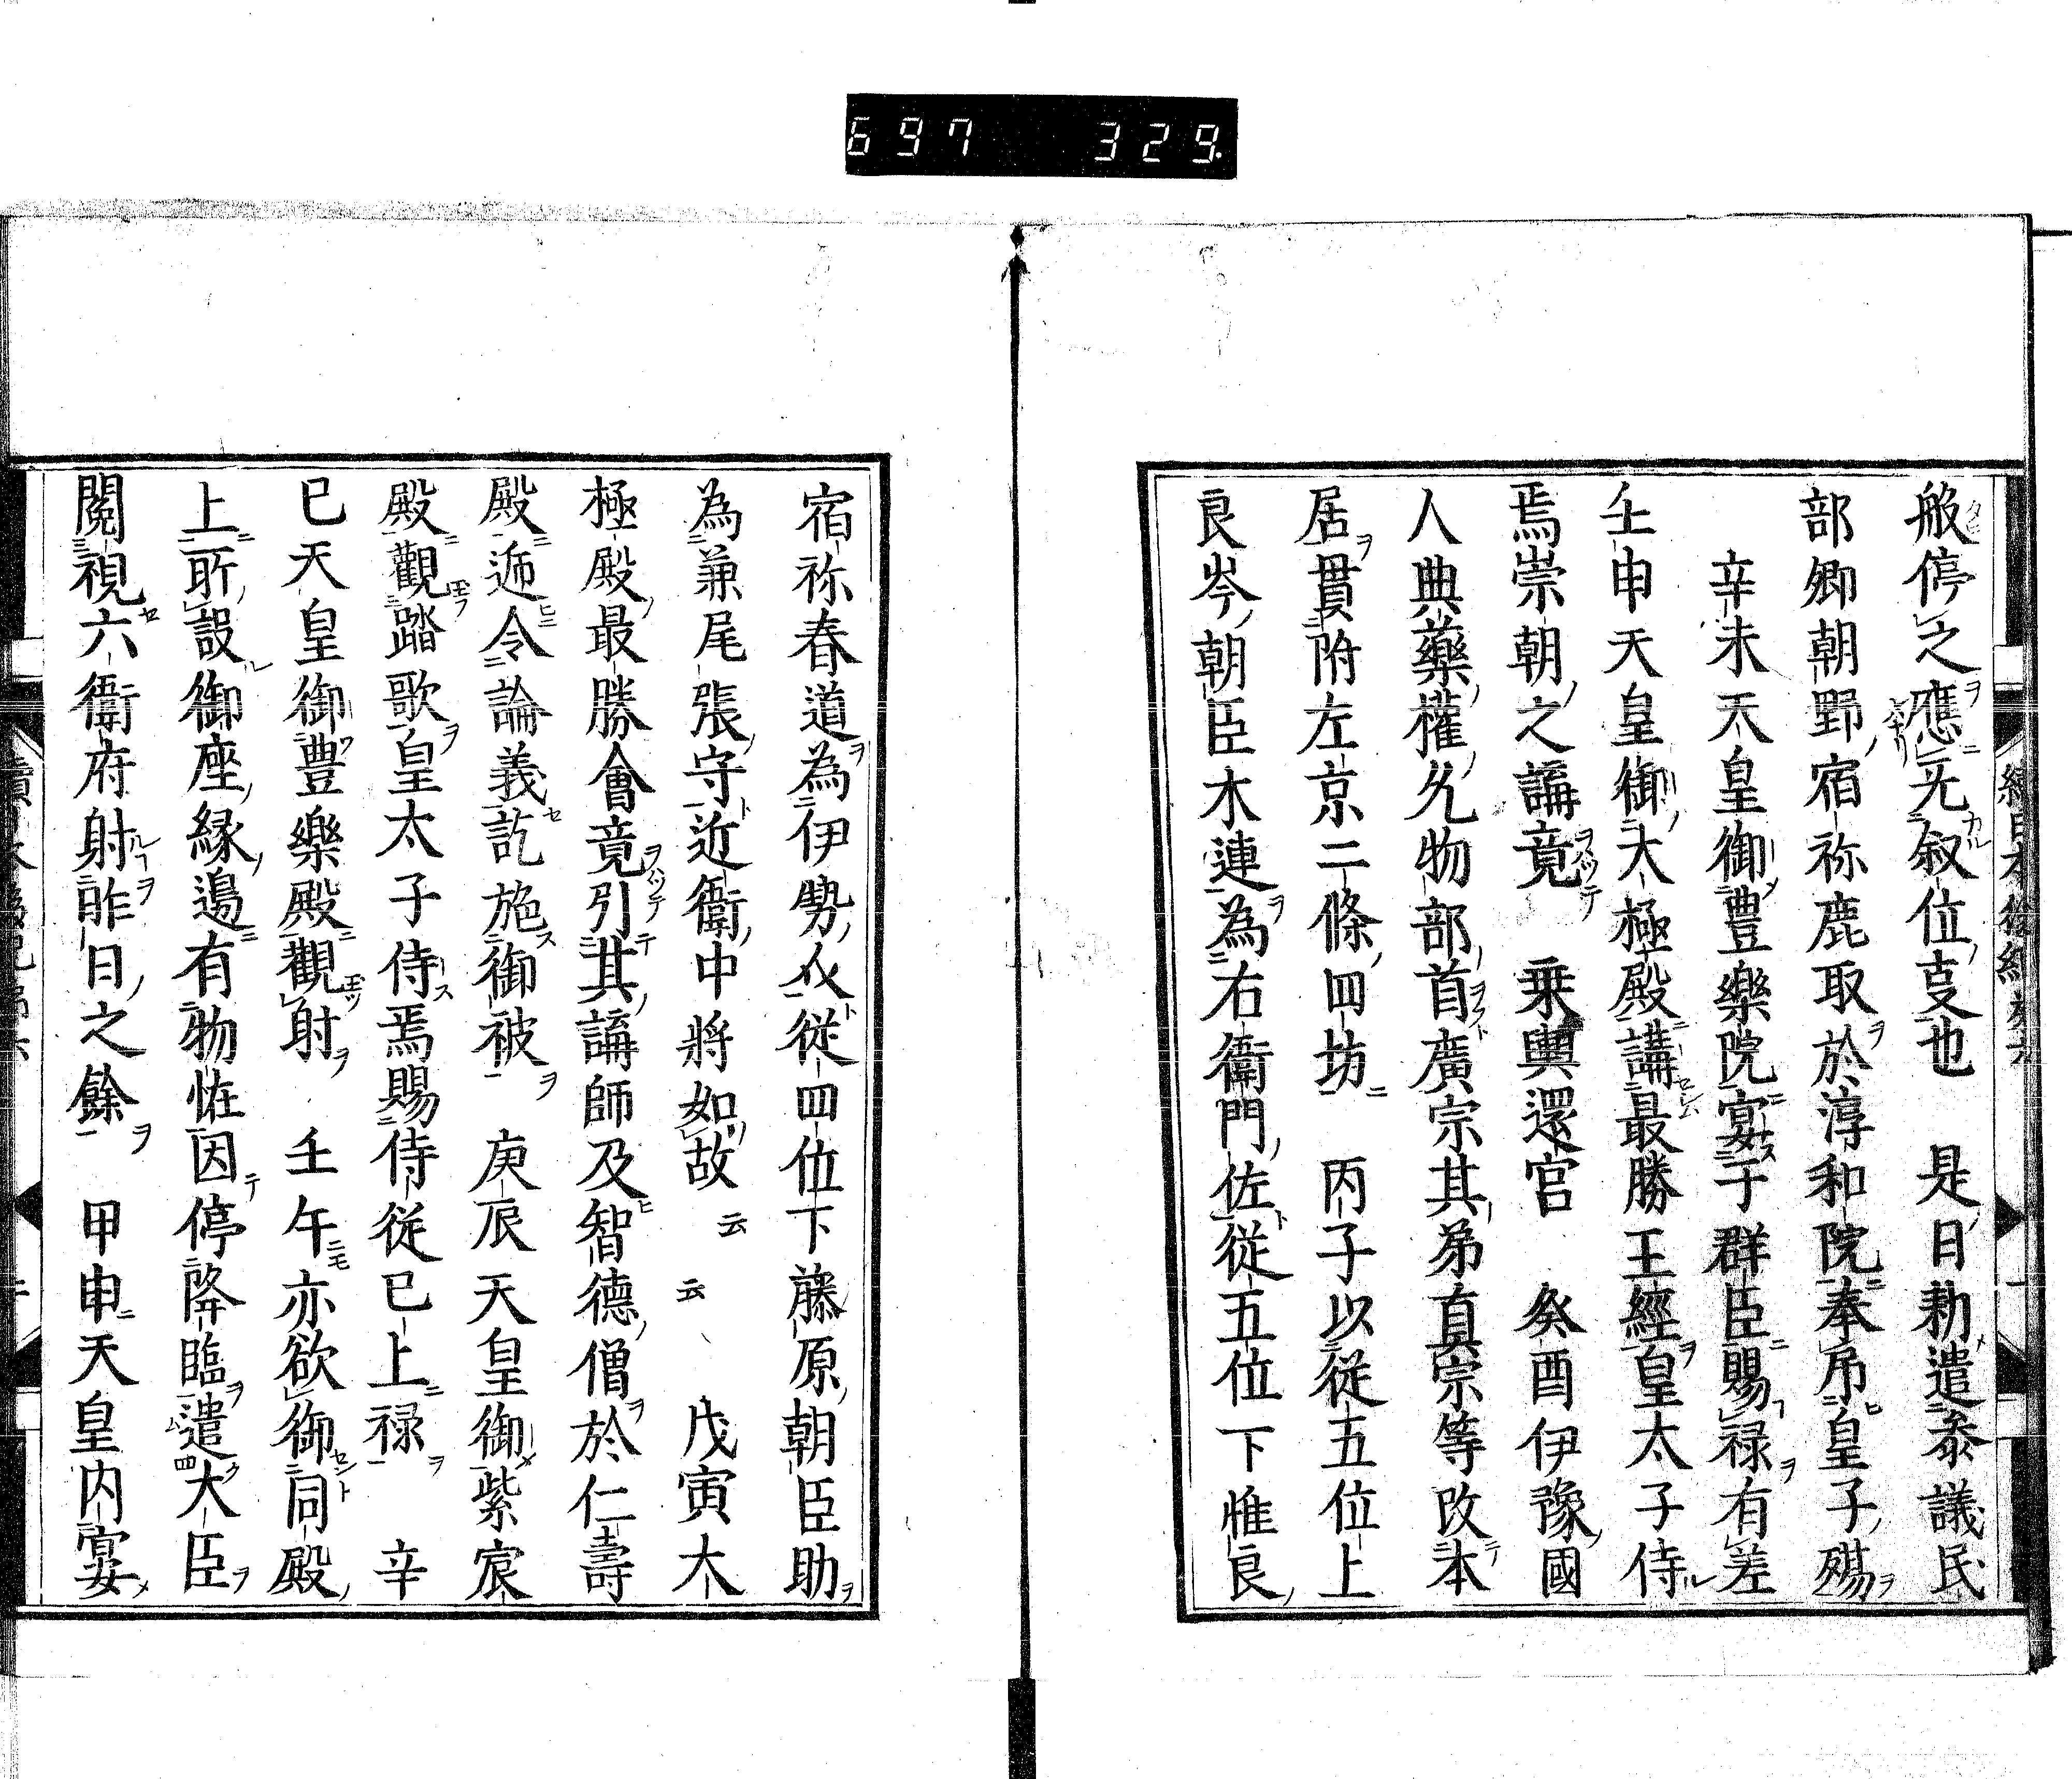 697 329.
般停之應先叙位支也 是日勅遣叅議民
部卿朝野宿祢鹿取於淳和院奉吊皇子殤
辛未天皇御豊樂院宴于群臣賜禄有差
壬申天皇御大極殿講最勝王經皇太子侍
焉崇朝之講竟 乗輿還宮 癸酉伊豫國
人典藥權允物部首廣宗其弟真宗等改本
居貫附左京二條四坊 丙子以従五位上
良岑朝臣木連為右衛門佐従五位下惟良
宿祢春道為伊勢介従四位下藤原朝臣助
為兼尾張守近衛中將如故 云 云 戊寅大
極殿最勝會竟引其講師及智德僧於仁壽
殿逓令論義訖施御被 庚辰天皇御紫宸
殿觀踏歌皇太子侍焉賜侍従已上禄 辛
巳天皇御豊樂殿觀射 壬午亦欲御同殿
上所設御座縁邉有物恠因停降臨遣大臣
閲視六衛府射昨日之餘 甲申天皇内宴